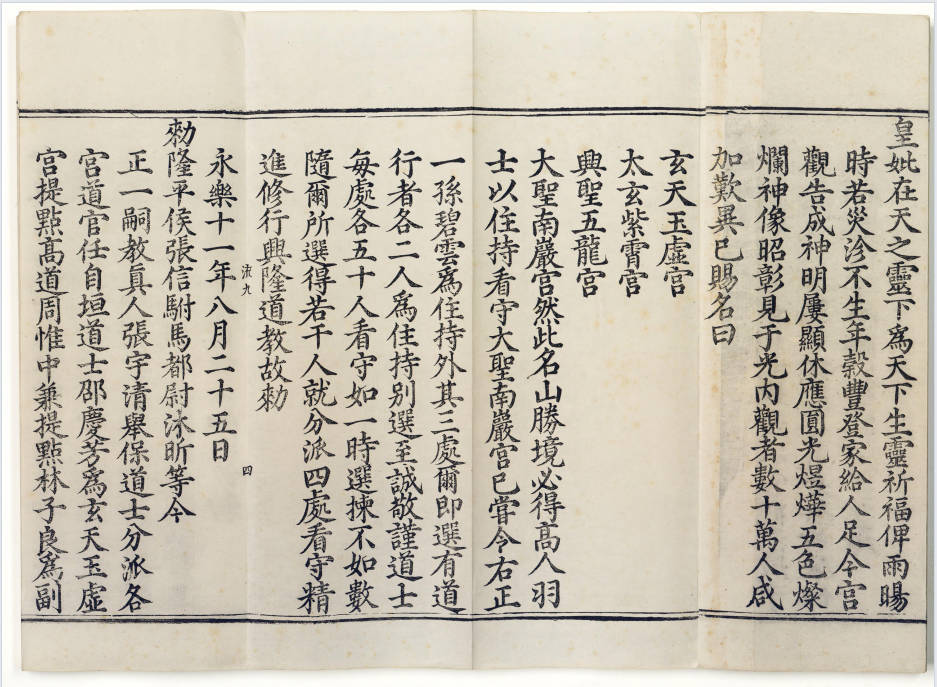 皇妣在天之靈下為天下生靈祈福俾雨暘
時若災沴不生年穀豐登家給人足今宮
觀告成神明屢顯休應圓光煜燁五色燦
爛神像昭彰見于光內觀者數十萬人咸
加歎異已賜名曰
玄天玉虛宮
太玄紫霄宮
興聖五龍宮
大聖南巖宮然此名山勝境必得高人羽
士以住持看守大聖南巖宮已嘗令右正
一孫碧雲為住持外其三處爾即選有道
行者各二人為住持別選至誠敬謹道士
每處各五十人看守如一時選揀不如數
隨爾所選得若干人就分派四處看守精
進修行興隆道教故勑
淑九
四
永樂十一年八月二十五日
勑隆平侯張信駙馬都尉沐昕等今
正一嗣教真人張宇清舉保道士分派各
宮道官任自垣道士邵慶芳為玄天玉虛
宮提點高道周惟中兼提點林子良為副